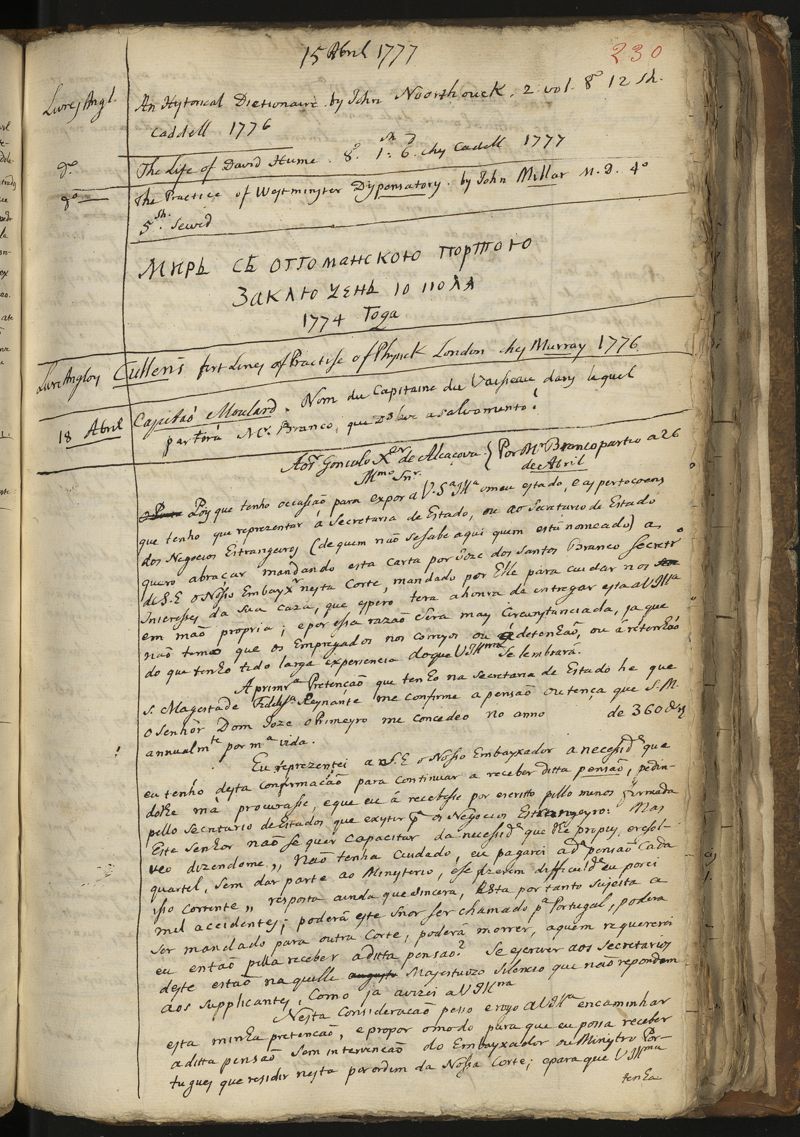 15 Abril 1777
230
Livres Angl.
An Hystorical Dictionaire by John Noorthouck. 2 vol. 8º 12 Sh.
Caddell 1776
dº
The Life of David Hume. 8º. 1 sh: 6 d. chez Cadell 1777
dº
The Practice of Westminster Dyspensatory. by John Millar M. D. 4º
5 Sh. Sewed
МИРЬ СЬ ОТТОМАНСКОЮ ПОРТОЮ
ЗАКЛЮЧЕНЬ 10 ІЮЛЯ
1774 Года
Livre Angloys
Cullen's first Lines of Practise of Physick London chez Murray 1776
18 Abril
Capitaõ Moulard. Nom du Capitaine du Vaisseau dans lequel
partirá Mr. Branco, que Ds leve a salvamento!
Aoſ Gonçalo Xer de Alcaçova. { Por Mr Branco partio a 26
de Abril
Illmo Snr.
Poys que tenho occasião para expor a V. Sª Illª o meu estado, e as pertençoens
que tenho que reprezentar á Secretaria de Estado, ou ao Secretario de Estado
dos Negocios Estrangeiros (de quem não se sabe aqui quem está nomeado) a
quero abraçar mandando esta carta por Joze dos Santos Branco Secretrº
de S. E o Nosso Embayxr nesta Corte, mandado por Elle para cuidar nos
Interesses da Sua Caza, que espero terá a honra de entregar esta a V Illma
em mão propria; e por essa razaõ Será mais Circunstanciada, ja que
não temo que os Empregados nos correyos ou á detençaõ, ou á retençaõ
do que tenho tido larga experiencia do que V Illma Se lembrará.
A primrª Pretenção que tenho na Secretaria de Estado he que
S. Magestade Fidelisª Reynante me confirme a pensão ou tença que S. M.
o Senhor Dom Joze o Primeyro me concedeo no anno de 360 d rs
annualmte por mª vida.
Eu reprezentei a S. E o Nosso Embayxador a necessidᵉ que
eu tenho desta Confirmação para continuar a receber ditta pensão, pedin-
dolhe ma procurasse, e que eu á recebesse por escritto pello menos firmada
pello Secretario de Estado que exytir pª os Negocios Estrangeyros: Mas
Este Senhor não se quer capacitar da necessidᵉ que lhe propus, e resol-
veo dizendome, „ Não tenha Cuidado, eu pagarei a dª pensão cada
quartel, Sem dar parte ao Ministerio, e se fizerem difficuldᵉ eu porei
isso Corrente „ resposta ainda que sincera, Está por tanto Sujeita a
mil accidentes; poderá este Snor ser chamado pª Portugal, poderá
Ser mandado para outra Corte, poderá morrer, a quem requererei
eu então pella receber a ditta pensaõ? Se escrever aos Secretarios
deste estão naquelle Majestuozo Silencio que não respondem
aos Supplicantes, Como ja avizei a V Illma
Nesta Consideração peço e rogo a V Illmª encaminhar
esta minha pretenção, e propor o modo para que eu possa receber
a ditta pensão Sem intervenção do Embayxador ou Ministro Por-
tugues que residir nesta por ordem da Nossa Corte; e para que V Illma
tenha